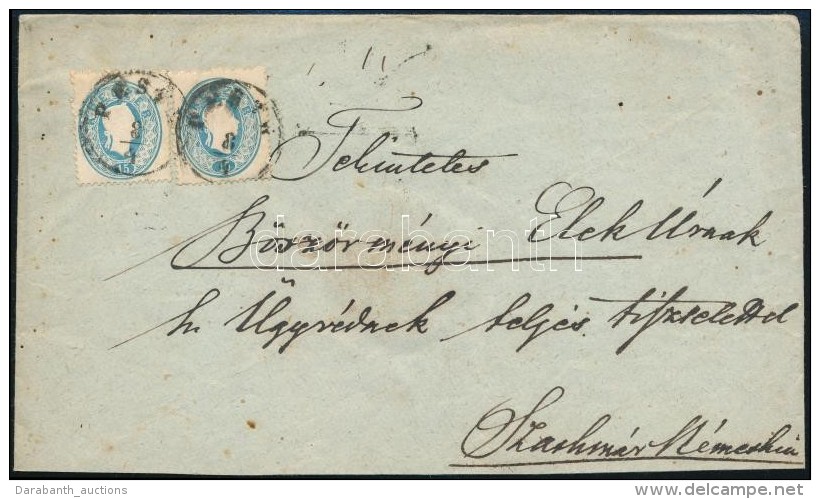 PEST
8/1
15
Tekintetes
Böszörményi Elek Úrnak
h. Ügyvédnek teljes tisztelettel
Szathmár Németibe
darabanth
Darabanth_auctions
delcampe.net